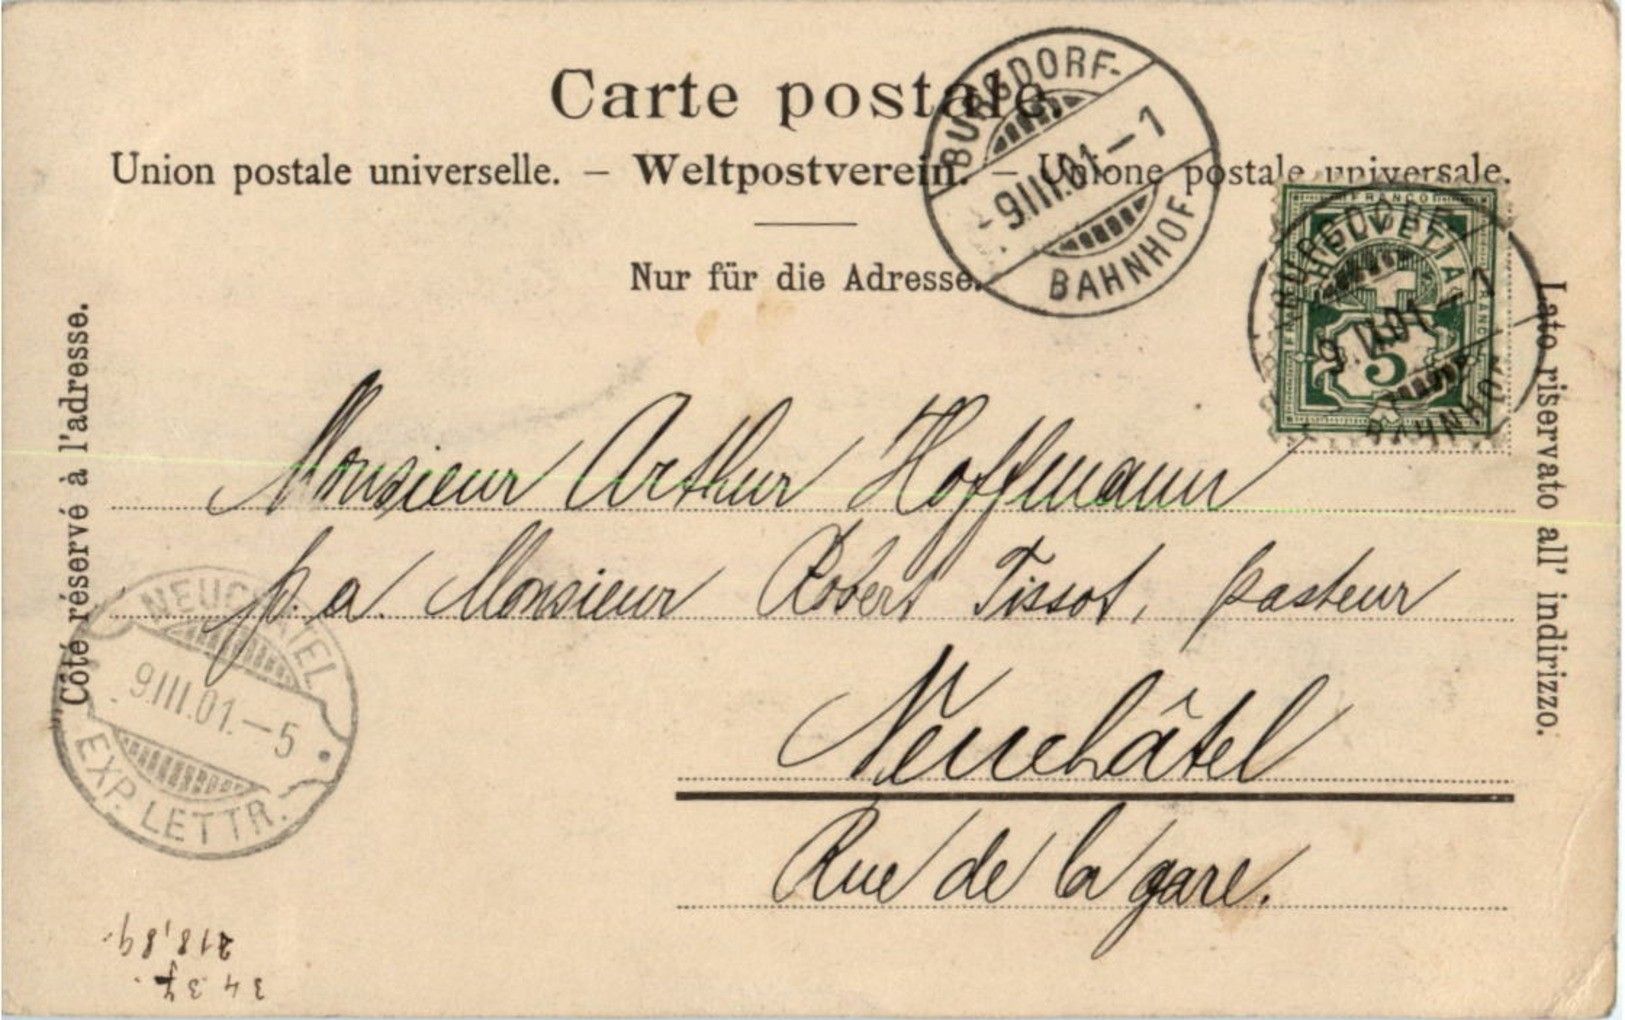 Carte postale.
Union postale universelle. – Weltpostverein. – Unione postale universale.
Nur für die Adresse.
Côté réservé à l'adresse.
Lato riservato all' indirizzo.
BURGDORF-
9.III.01.–1
BAHNHOF
FRANCO
HELVETIA
5
BURGDORF-
9.III.01.–1
BAHNHOF
Monsieur Arthur Hoffmann
p. a. Monsieur Robert Tissot, pasteur
Neuchâtel
Rue de la gare.
NEUCHATEL
9.III.01.–5
EXP. LETTR.
218,89